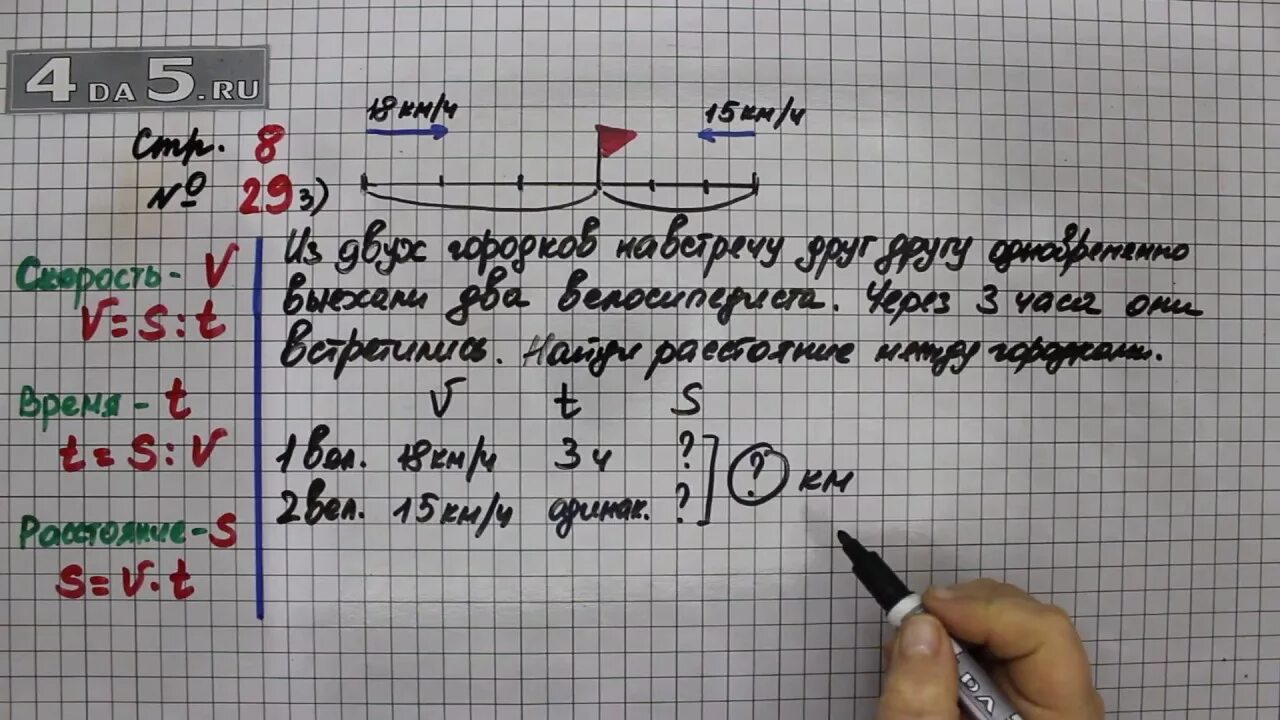 4 DA 5.RU
18 км/ч 15 км/ч
Стр. 8
№ 29 3)
Из двух городков навстречу друг другу одновременно
выехали два велосипедиста. Через 3 часа они
встретились. Найди расстояние между городками.
Скорость - V
V = S : t
Время - t
t = S : V
Расстояние - S
S = V · t
V t S
1 вел. 18 км/ч 3 ч ? ? км
2 вел. 15 км/ч одинак. ?